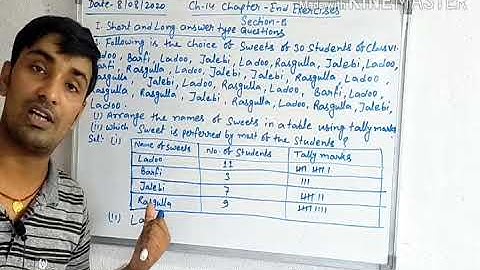 Date- 8/08/2020 Ch-14 Chapter-End Exercises
Section-B
I. Short and Long answer type Questions
Following is the choice of Sweets of 30 Students of Class VI-
Ladoo, Barfi, Ladoo, Jalebi, Ladoo, Rasgulla, Jalebi, Ladoo,
Barfi, Rasgulla, Ladoo, Jalebi, Jalebi, Rasgulla, Ladoo,
Rasgulla, Jalebi, Ladoo, Rasgulla, Ladoo,
Rasgulla, Ladoo, Barfi, Ladoo,
Rasgulla, Jalebi, Rasgulla, Ladoo, Rasgulla, Jalebi,
Ladoo.
(i) Arrange the names of Sweets in a table using tally marks
(ii) which Sweet is perferred by most of the Students?
Sol:- (i)
Name of sweets No. of Students Tally marks
Ladoo 11
Barfi 3 III
Jalebi 7
Rasgulla 9
(ii) La